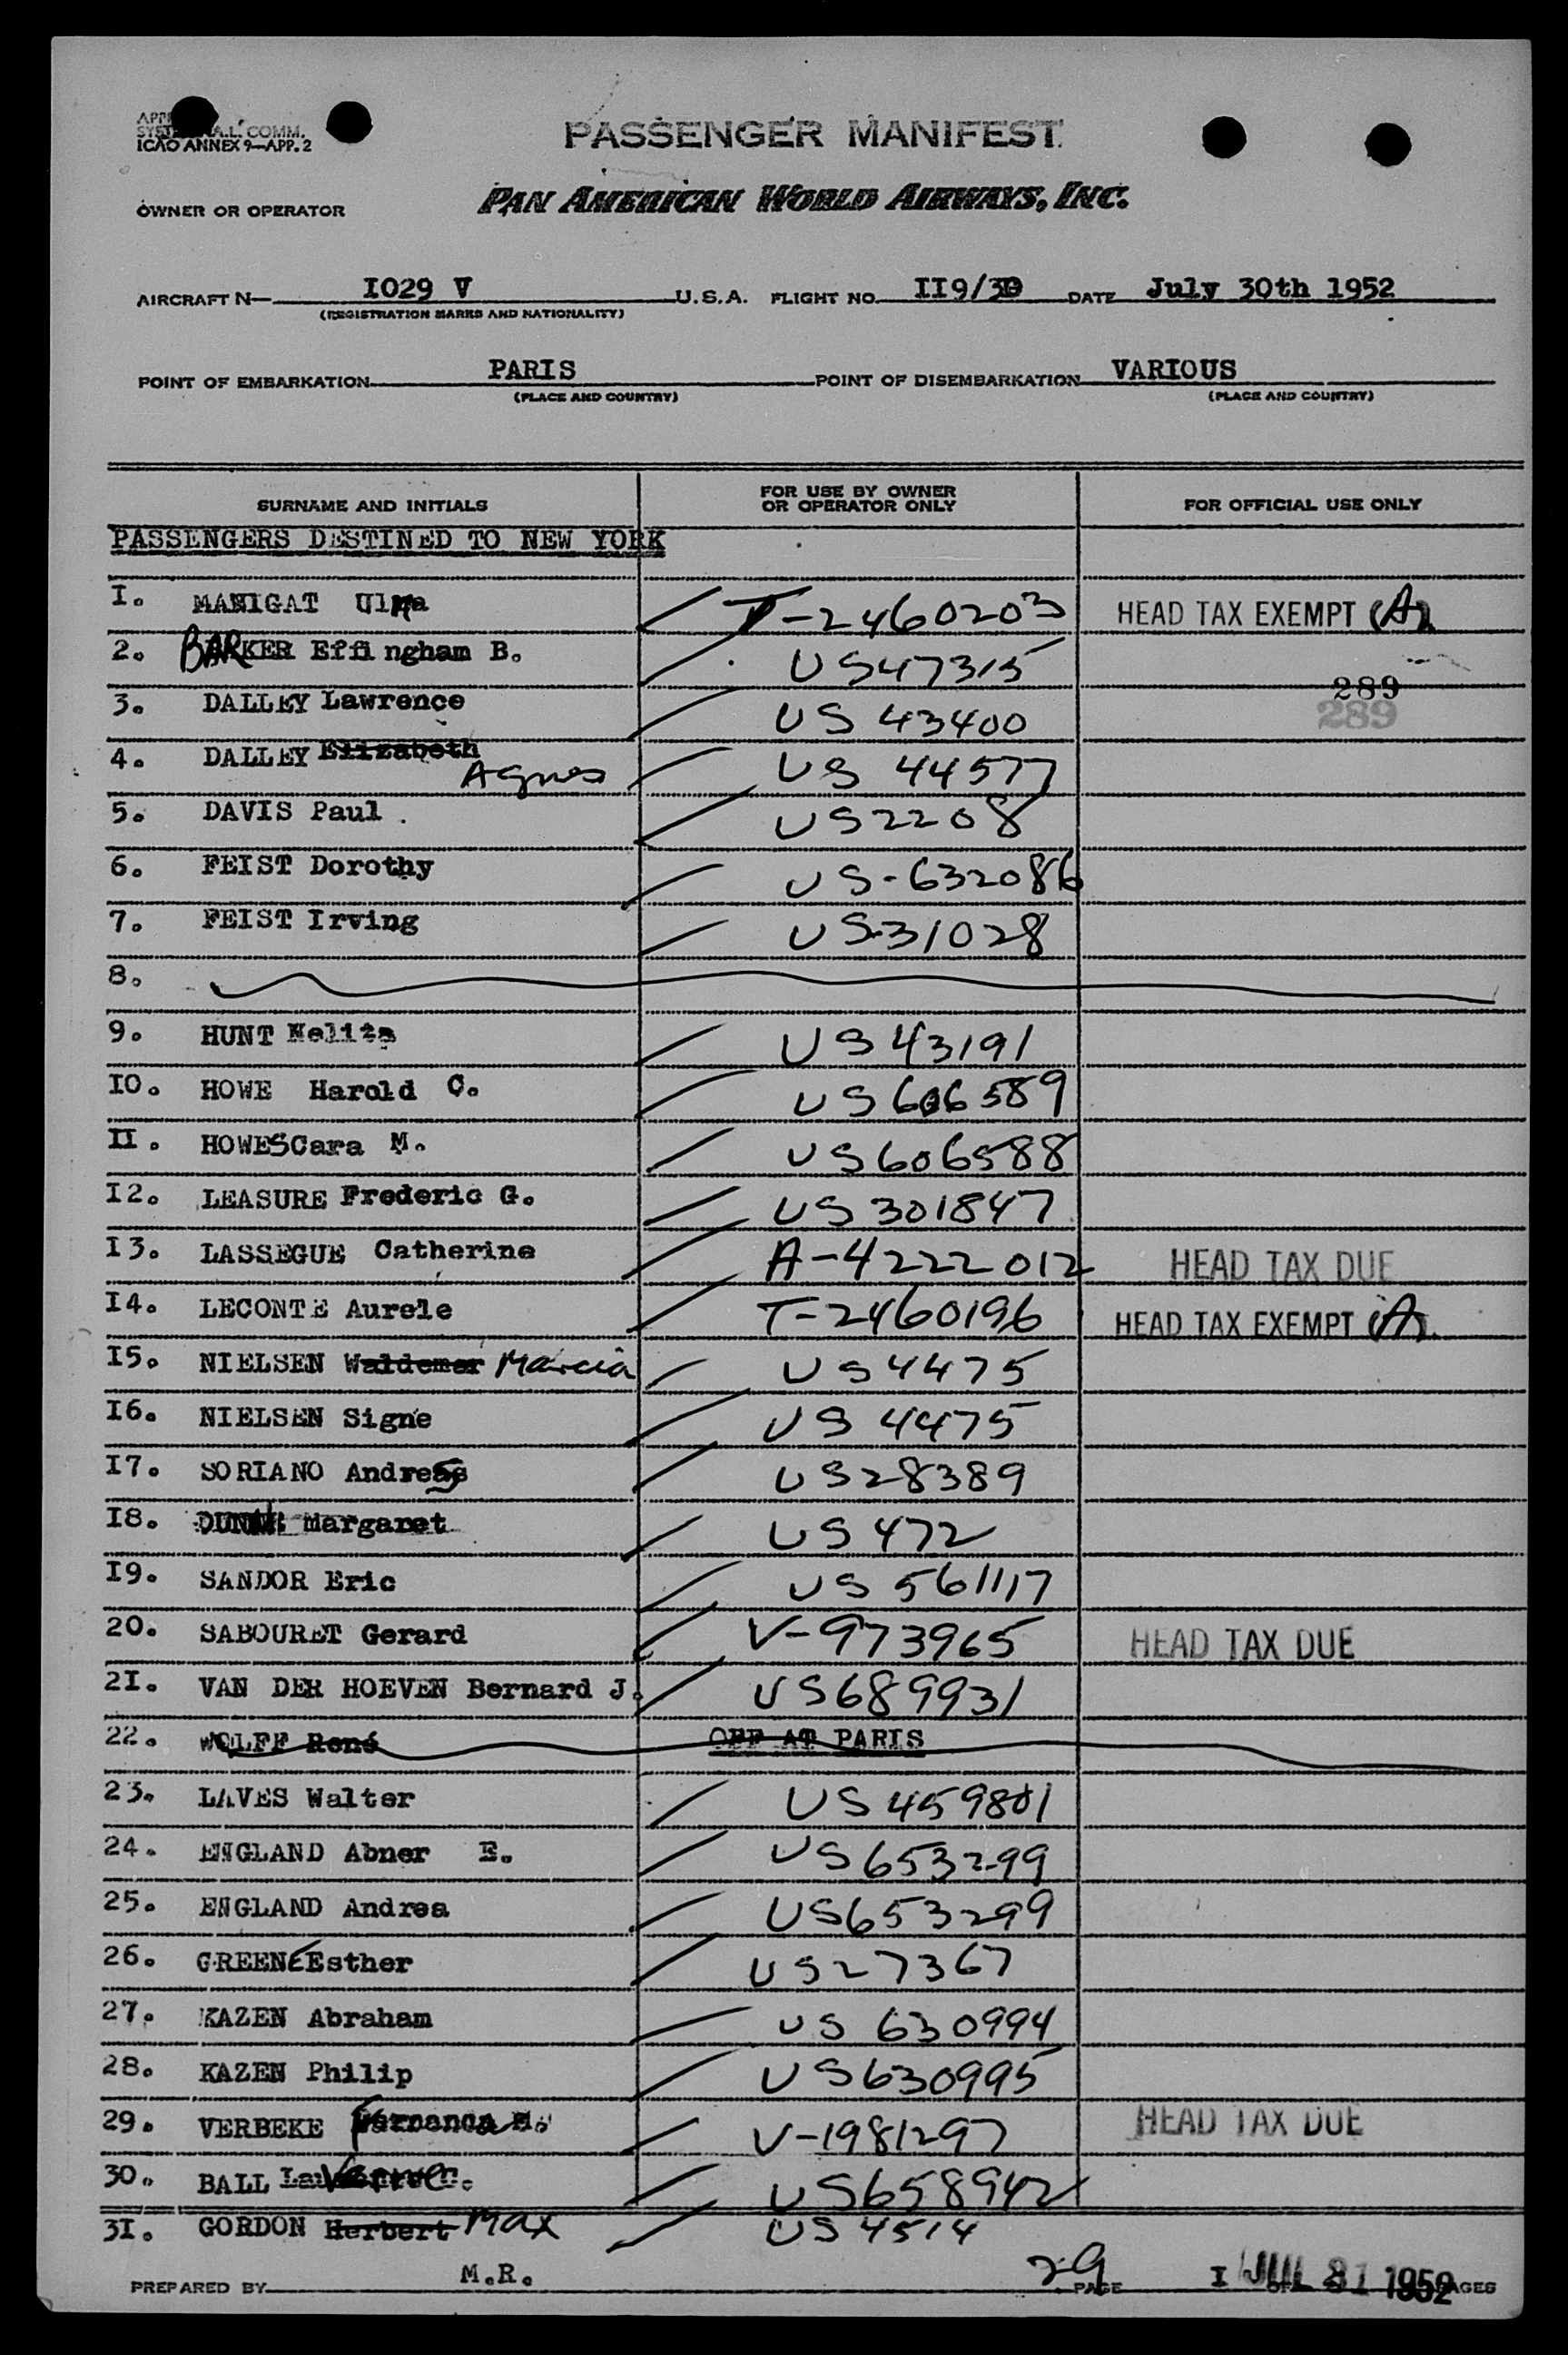 ICAO ANNEX 9—APP. 2
PASSENGER MANIFEST
OWNER OR OPERATOR PAN AMERICAN WORLD AIRWAYS, INC.
AIRCRAFT N— I029 V U.S.A. FLIGHT NO. II9/30 DATE July 30th 1952
(REGISTRATION MARKS AND NATIONALITY)
POINT OF EMBARKATION PARIS POINT OF DISEMBARKATION VARIOUS
(PLACE AND COUNTRY) (PLACE AND COUNTRY)
SURNAME AND INITIALS FOR USE BY OWNER OR OPERATOR ONLY FOR OFFICIAL USE ONLY
PASSENGERS DESTINED TO NEW YORK
I. MANIGAT T-2460203 HEAD TAX EXEMPT (A)
2. BARKER Effingham B. US47315
289
289
3. DALLEY Lawrence US 43400
4. DALLEY Elizabeth Agnes US 44577
5. DAVIS Paul . US2208
6. FEIST Dorothy US-632086
7. FEIST Irving US-31028
8.
9. HUNT US43191
IO. HOWE Harold C. US606589
II. HOWESCara M. US606588
I2. LEASURE Frederic G. US301847
I3. LASSEGUE Catherine A-4222012 HEAD TAX DUE
I4. LECONTE Aurele T-2460196 HEAD TAX EXEMPT (A)
I5. NIELSEN Waldemar Marcia US4475
I6. NIELSEN Signe US 4475
I7. SORIANO Andres US28389
I8. Margaret US 472
I9. SANDOR Eric US 561117
20. SABOURET Gerard V-973965 HEAD TAX DUE
2I. VAN DER HOEVEN Bernard J. US689931
22. WOLFF René OFF AT PARIS
23. LAVES Walter US 459801
24. ENGLAND Abner E. US653299
25. ENGLAND Andrea US653299
26. GREENE Esther US27367
27. KAZEN Abraham US 630994
28. KAZEN Philip US630995
29. VERBEKE Fernanda M. V-1981297 HEAD TAX DUE
30. BALL US658942
3I. GORDON Herbert Max US 4514
PREPARED BY M.R. 29 PAGE I OF PAGES
JUL 31 1952